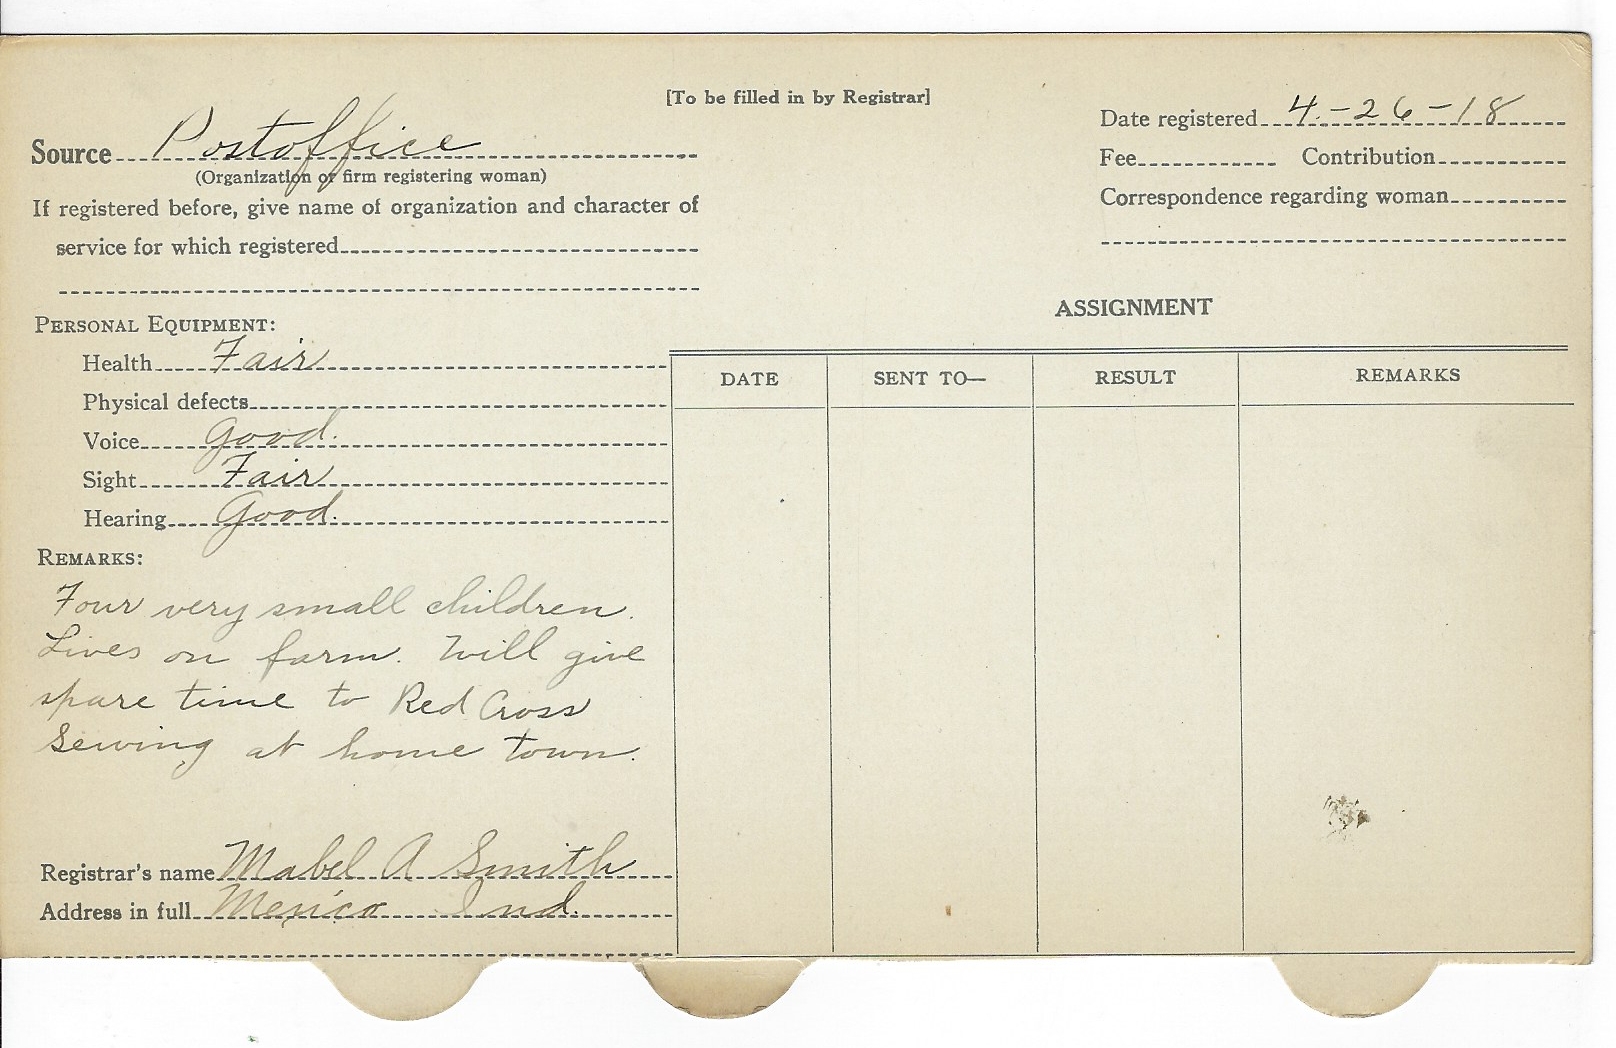 [To be filled in by Registrar]
Source Postoffice
(Organization or firm registering woman)
If registered before, give name of organization and character of
service for which registered
Date registered 4-26-18
Fee Contribution
Correspondence regarding woman
PERSONAL EQUIPMENT:
Health Fair
Physical defects
Voice Good.
Sight Fair
Hearing Good.
REMARKS:
Four very small children.
Lives on farm. Will give
spare time to Red Cross
Sewing at home town.
Registrar's name Mabel A Smith
Address in full Mexico Ind.
ASSIGNMENT
DATE SENT TO— RESULT REMARKS